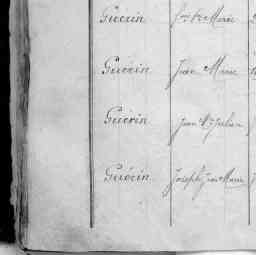 Guérin Jn Fs Marie
Guérin Jean Marie
Guérin Jean Mie Julien
Guérin Joseph Jean Marie